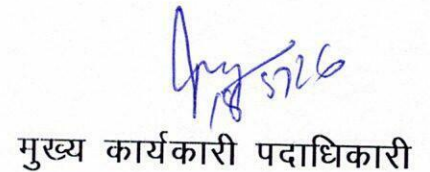 मुख्य कार्यकारी पदाधिकारी